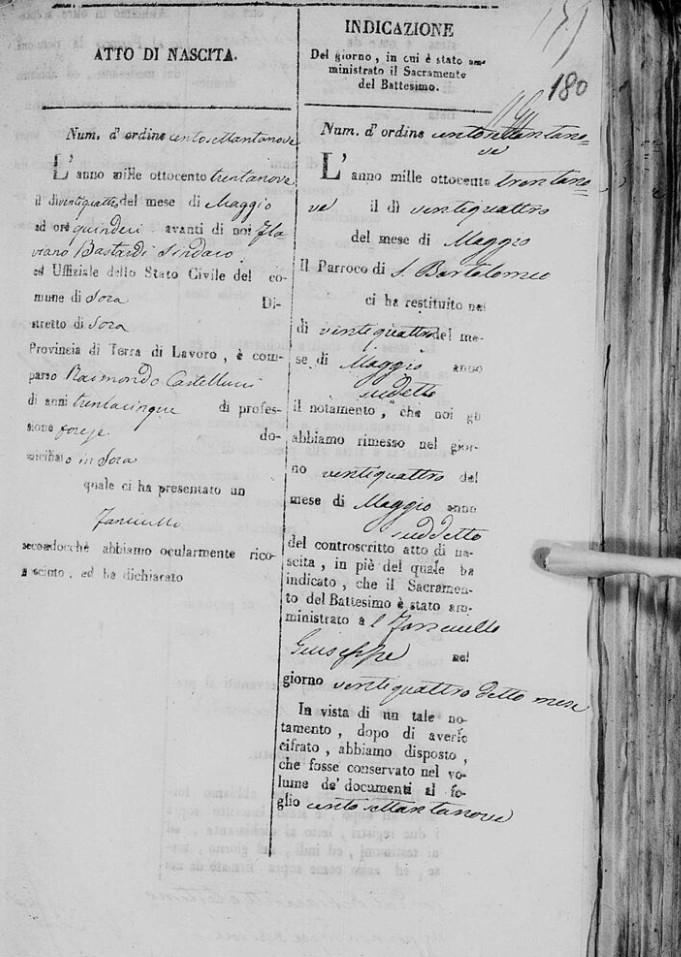 ATTO DI NASCITA.
Num. d' ordine centosettantanove
L'anno mille ottocento trentanove
il dì ventiquattro del mese di Maggio
ad ore quindici avanti di noi Fla
viano Bastardi Sindaco
ed Uffiziale dello Stato Civile del co-
mune di Sora Di-
stretto di Sora
Provincia di Terra di Lavoro, è com-
parso Raimondo Castellucci
di anni trentacinque di profes-
sione forese do-
miciliato in Sora
quale ci ha presentato un
Fanciullo
secondocchè abbiamo ocularmente rico-
nosciuto, ed ha dichiarato
INDICAZIONE
Del giorno, in cui è stato am-
ministrato il Sacramento
del Battesimo.
180
Num. d' ordine centosettantano=
ve
L'anno mille ottocento trentano=
ve il dì ventiquattro
del mese di Maggio
Il Parroco di S. Bartolomeo
ci ha restituito nel
dì ventiquattro del me-
se di Maggio anno
suddetto
il notamento, che noi gli
abbiamo rimesso nel gior-
no ventiquattro del
mese di Maggio anno
suddetto
del controscritto atto di na-
scita, in piè del quale ha
indicato, che il Sacramen-
to del Battesimo è stato am-
ministrato a l Fanciullo
Giuseppe nel
giorno ventiquattro detto mese
In vista di un tale no-
tamento, dopo di averlo
cifrato, abbiamo disposto,
che fosse conservato nel vo-
lume de' documenti al fo-
glio centosettantanove